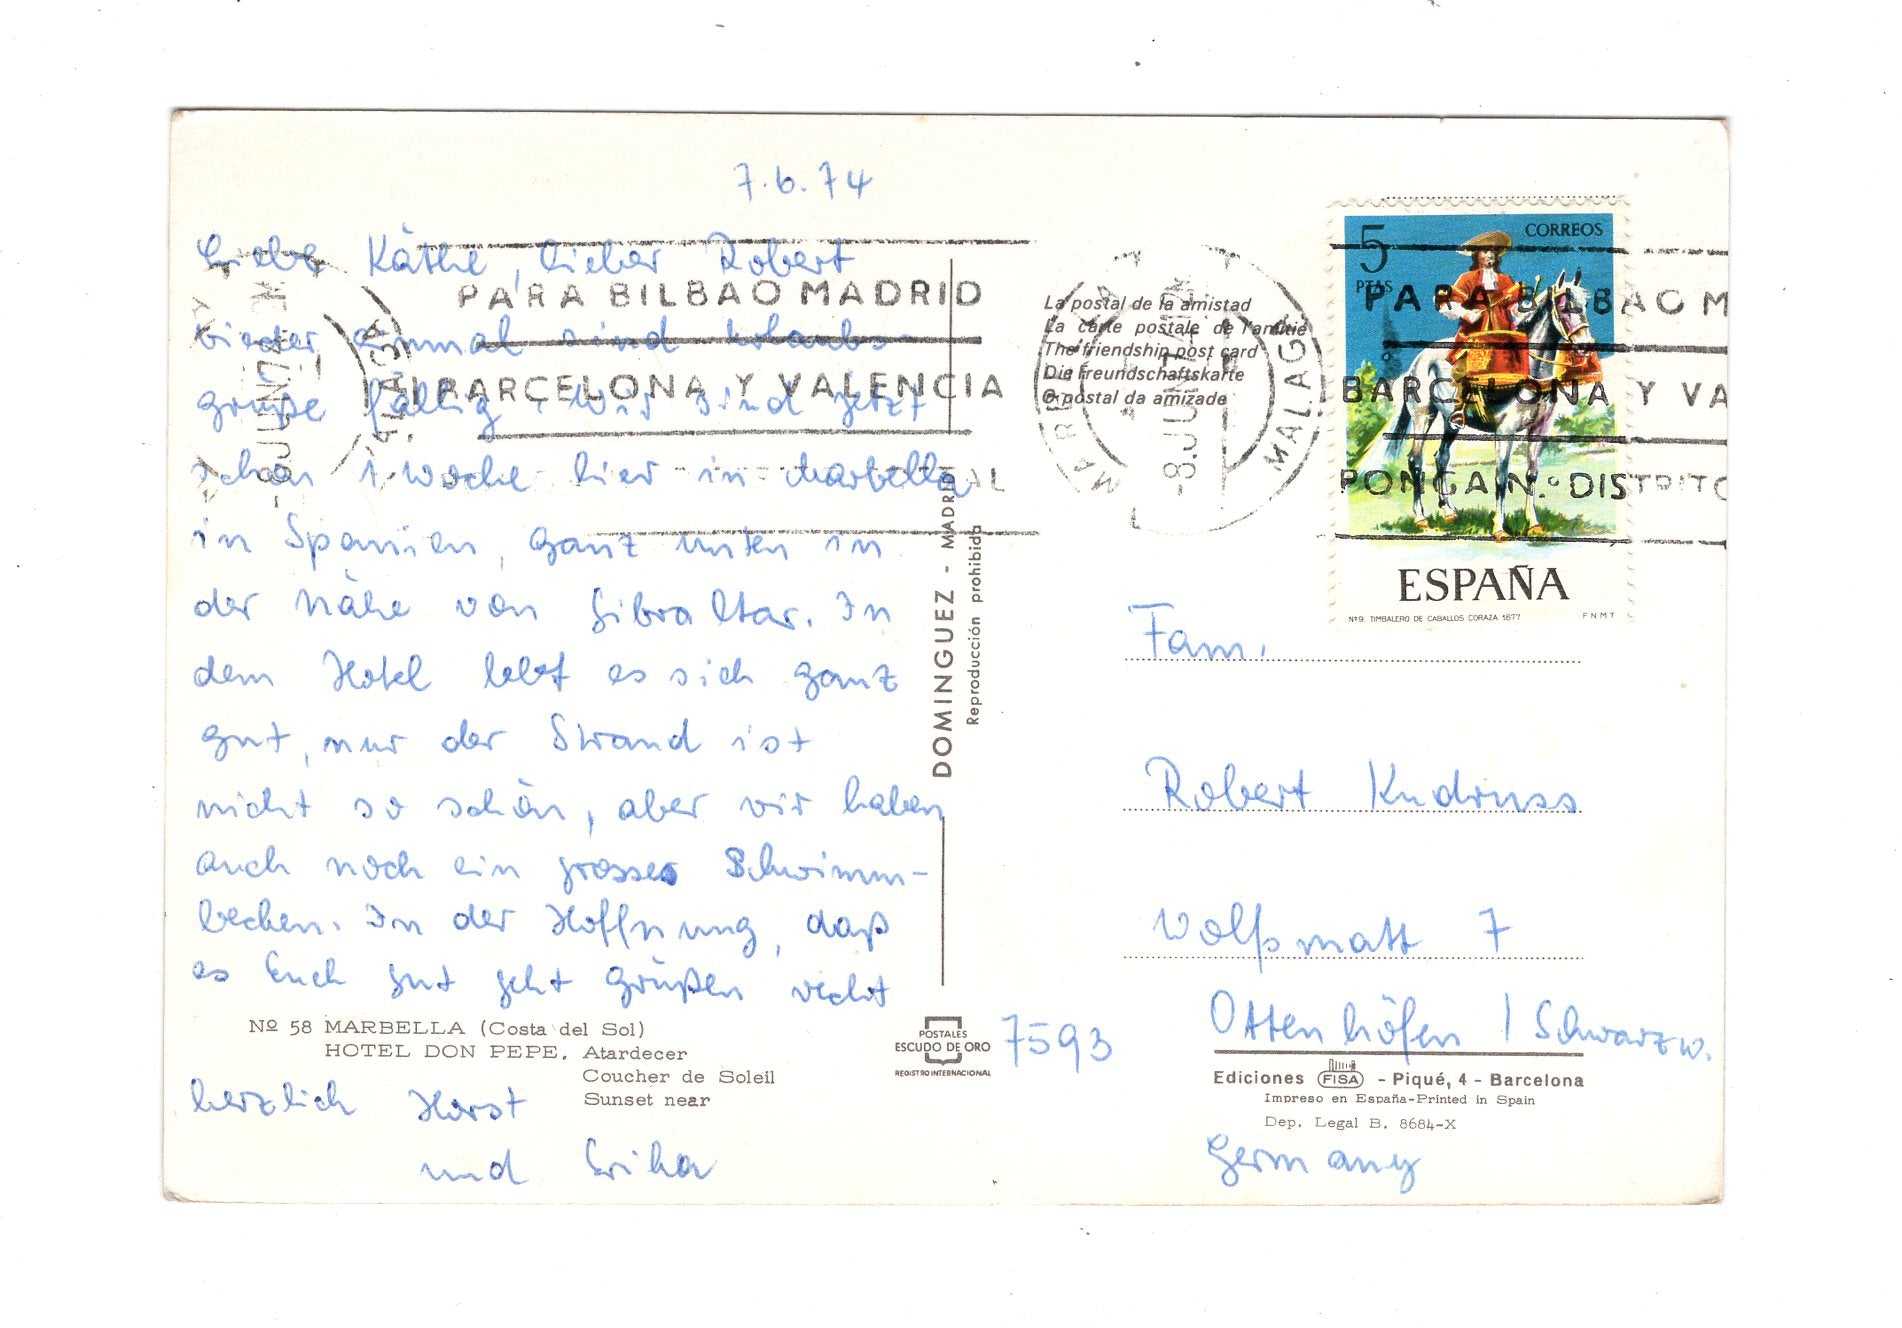 7.6.74
Liebe Käthe, lieber Robert
wieder einmal sind Urlaubs-
grüße fällig. Wir sind jetzt
schon 1 Woche hier in Marbella
in Spanien, ganz unten in
der Nähe von Gibraltar. In
dem Hotel lebt es sich ganz
gut, nur der Strand ist
nicht so schön, aber wir haben
auch noch ein grosses Schwimm-
becken. In der Hoffnung, daß
es Euch gut geht grüßen recht
herzlich Horst
und Erika
Nº 58 MARBELLA (Costa del Sol)
HOTEL DON PEPE. Atardecer
Coucher de Soleil
Sunset near
PARA BILBAO MADRID
BARCELONA Y VALENCIA
DOMINGUEZ - MADRID
Reproducción prohibida
POSTALES
ESCUDO DE ORO
REGISTRO INTERNACIONAL
La postal de la amistad
La carte postale de l'amitié
The friendship post card
Die Freundschaftskarte
O postal da amizade
MARBELLA
-8.JUN.74
MALAGA
5
PTAS
CORREOS
PARA BILBAO M
BARCELONA Y VA
PONGA N.º DISTRITO
ESPAÑA
Nº9. TIMBALERO DE CABALLOS CORAZA 1677
F N M T
Fam.
Robert Kndruss
Wolfsmatt 7
7593 Ottenhöfen / Schwarzw.
Ediciones FISA - Piqué, 4 - Barcelona
Impreso en España-Printed in Spain
Dep. Legal B. 8684-X
Germany